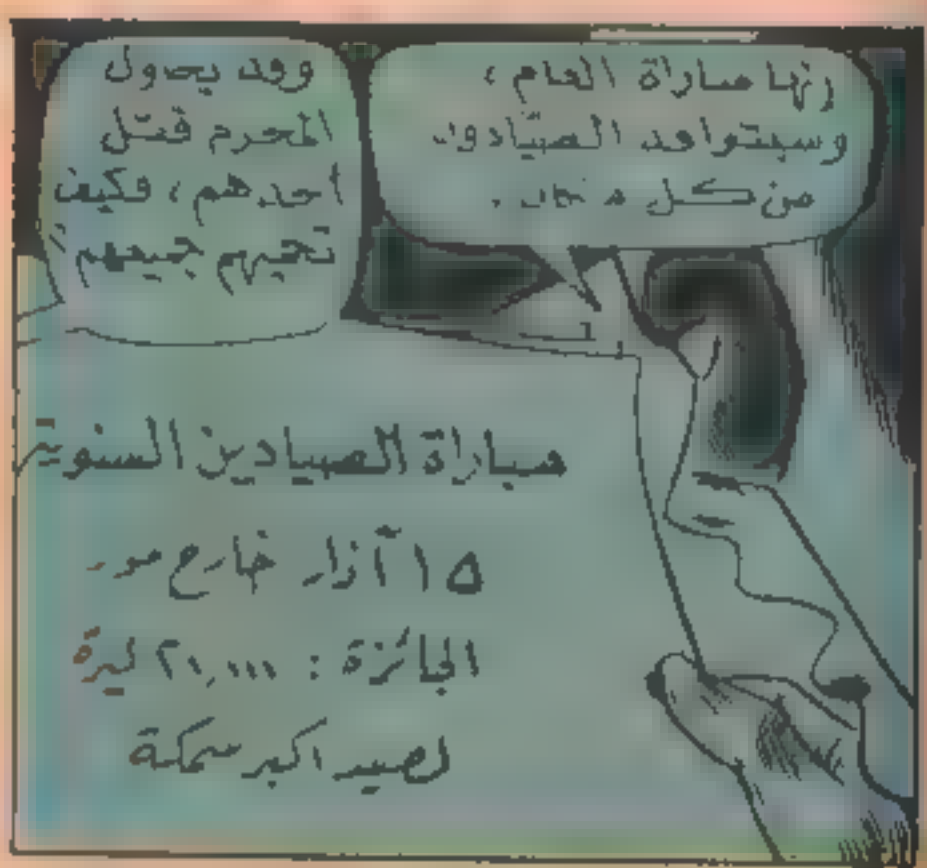 إنها مباراة العام،
وسيتوافد الصيّادون
من كل مكان.
وقد يحاول
المجرم قتل
أحدهم، فكيف
تحميهم جميعهم؟
مباراة الصيادين السنوية
١٥ آذار خارج
الجائزة : ٢١,١١١ ليرة
لصيد اكبر سمكة